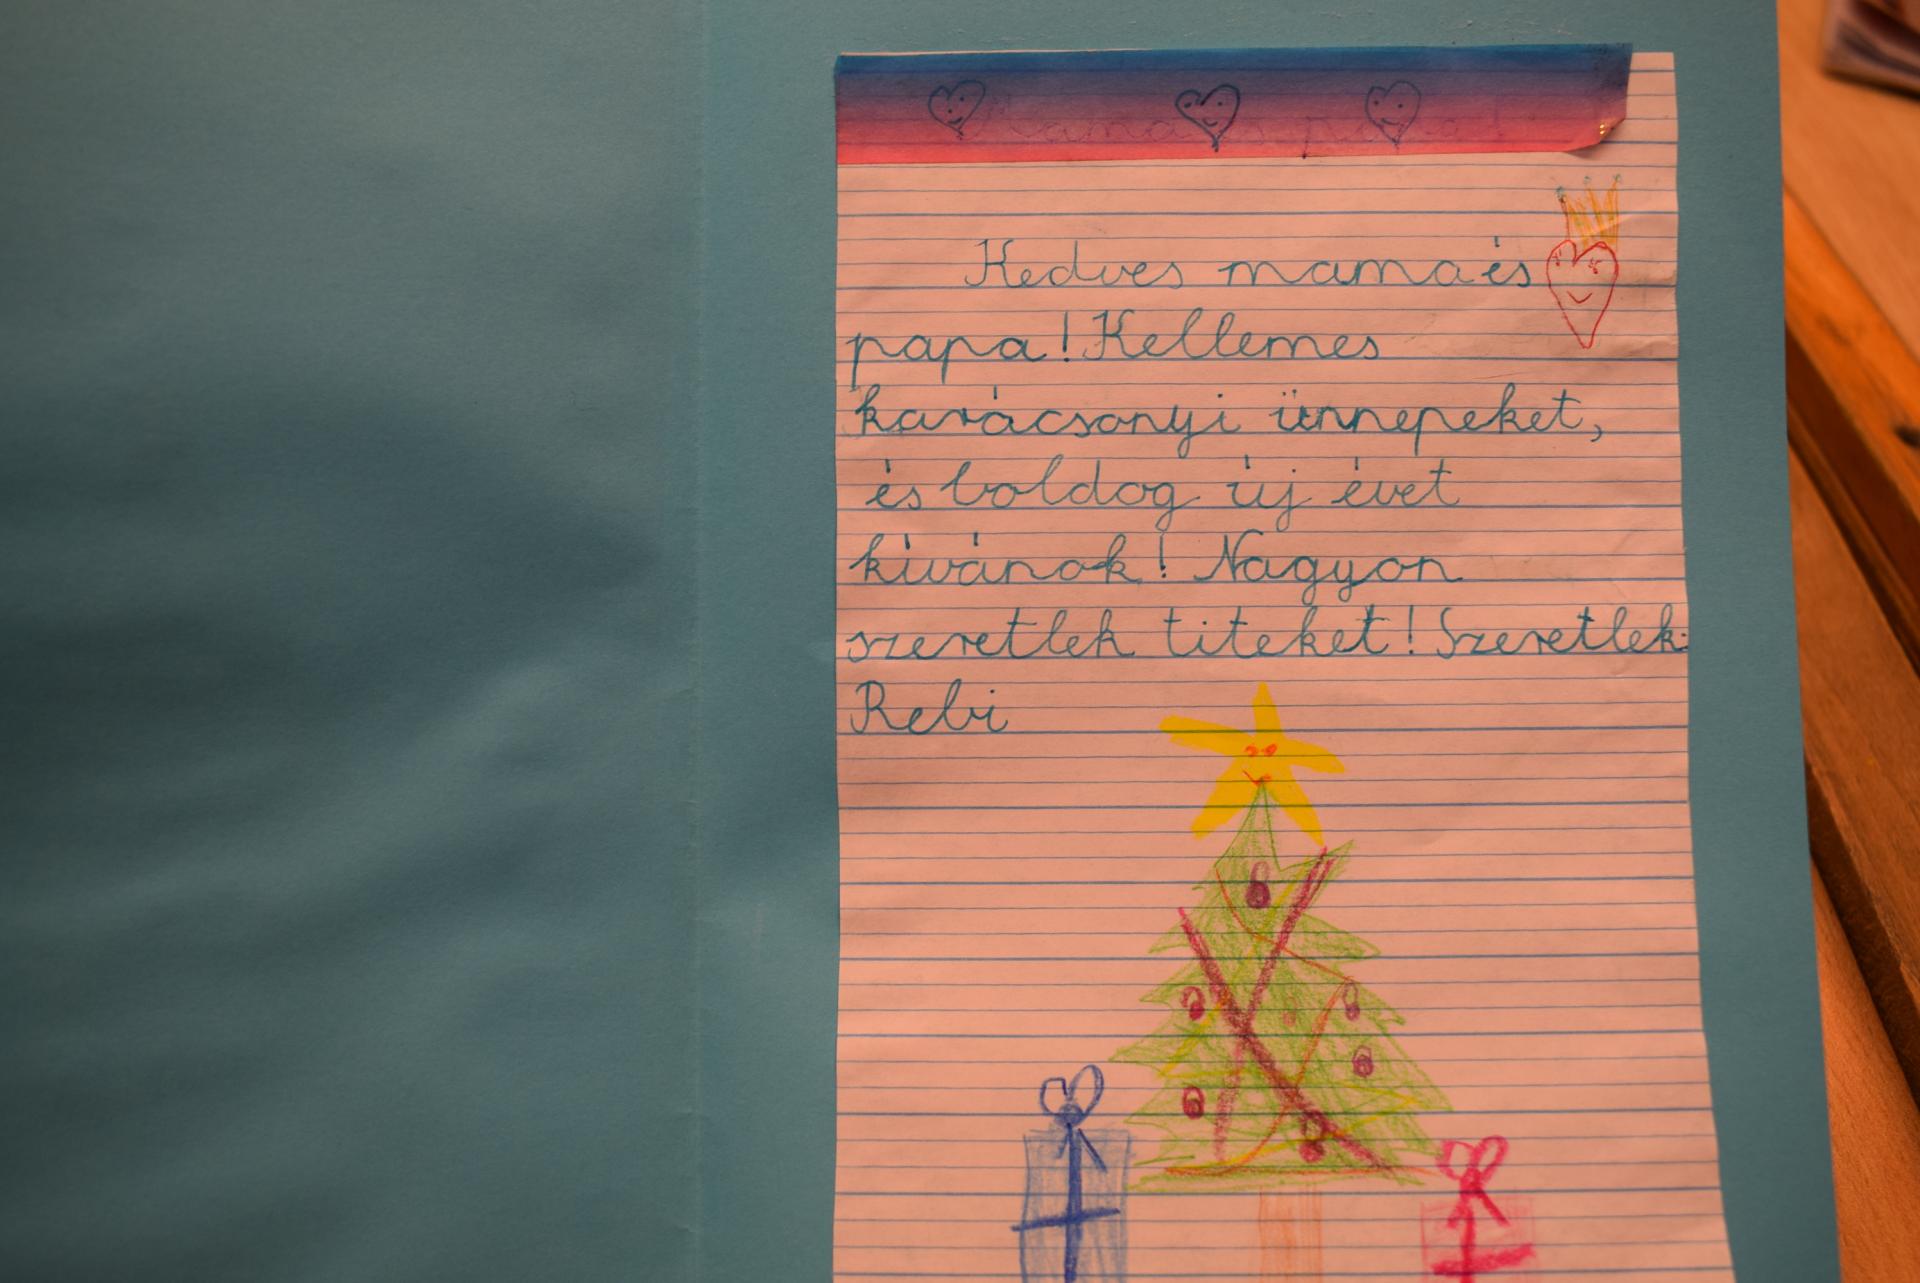 mama és papa!
Kedves mama és
papa! Kellemes
karácsonyi ünnepeket,
és boldog új évet
kívánok! Nagyon
szeretlek titeket! Szeretlek:
Rebi